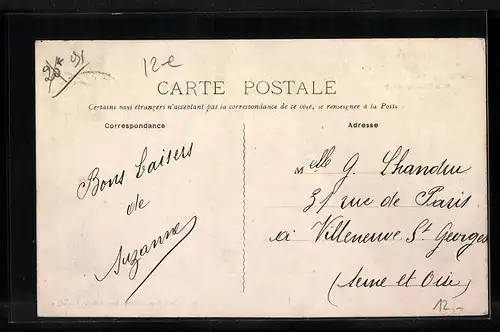 12-e
CARTE POSTALE
Certains pays étrangers n'acceptant pas la correspondance de ce côté, se renseigner à la Poste
Correspondance
Adresse
Bons baisers
de
Suzanne
Mlle G. Chandru
31 rue de Paris
à Villeneuve St Georges
(Seine et Oise)
12,-